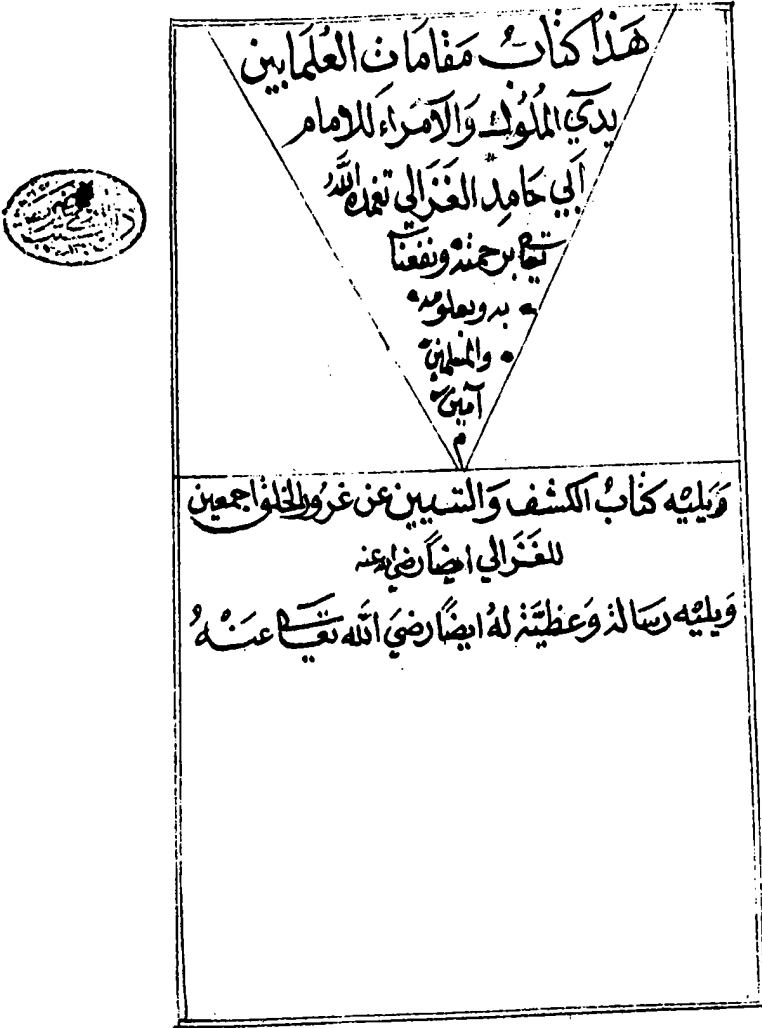 هَذَا كتَابُ مَقَامَات العُلَمَا بين
يدَيِ المُلوُك وَالأمرَاءَ للامام
أبي حَامِد الغَزَالي تغمده اللّٰهُ
تعا برحمته ونفعنا
به وبعلومه
والمسلمين
آمين
م
وَيليْه كتَابُ الكشف وَالتبيين عن غرور الخلق اجمعين
للغَزَالي ايضًا رضي الله عنه
وَيليْه رسَالة وَعظيَّة لهُ ايضًا رضيَ الله تعا عَنْهُ